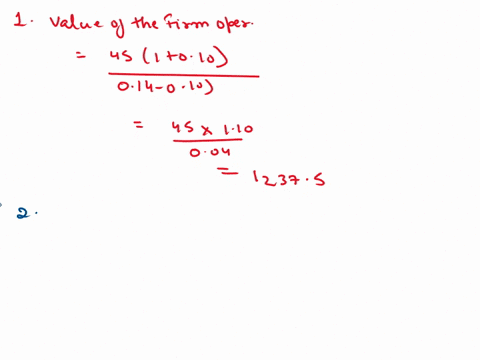 1. Value of the Firm oper.
= 45 (1+0.10)
0.14-0.10)
= 45 x 1.10
0.04
= 1237.5
2.